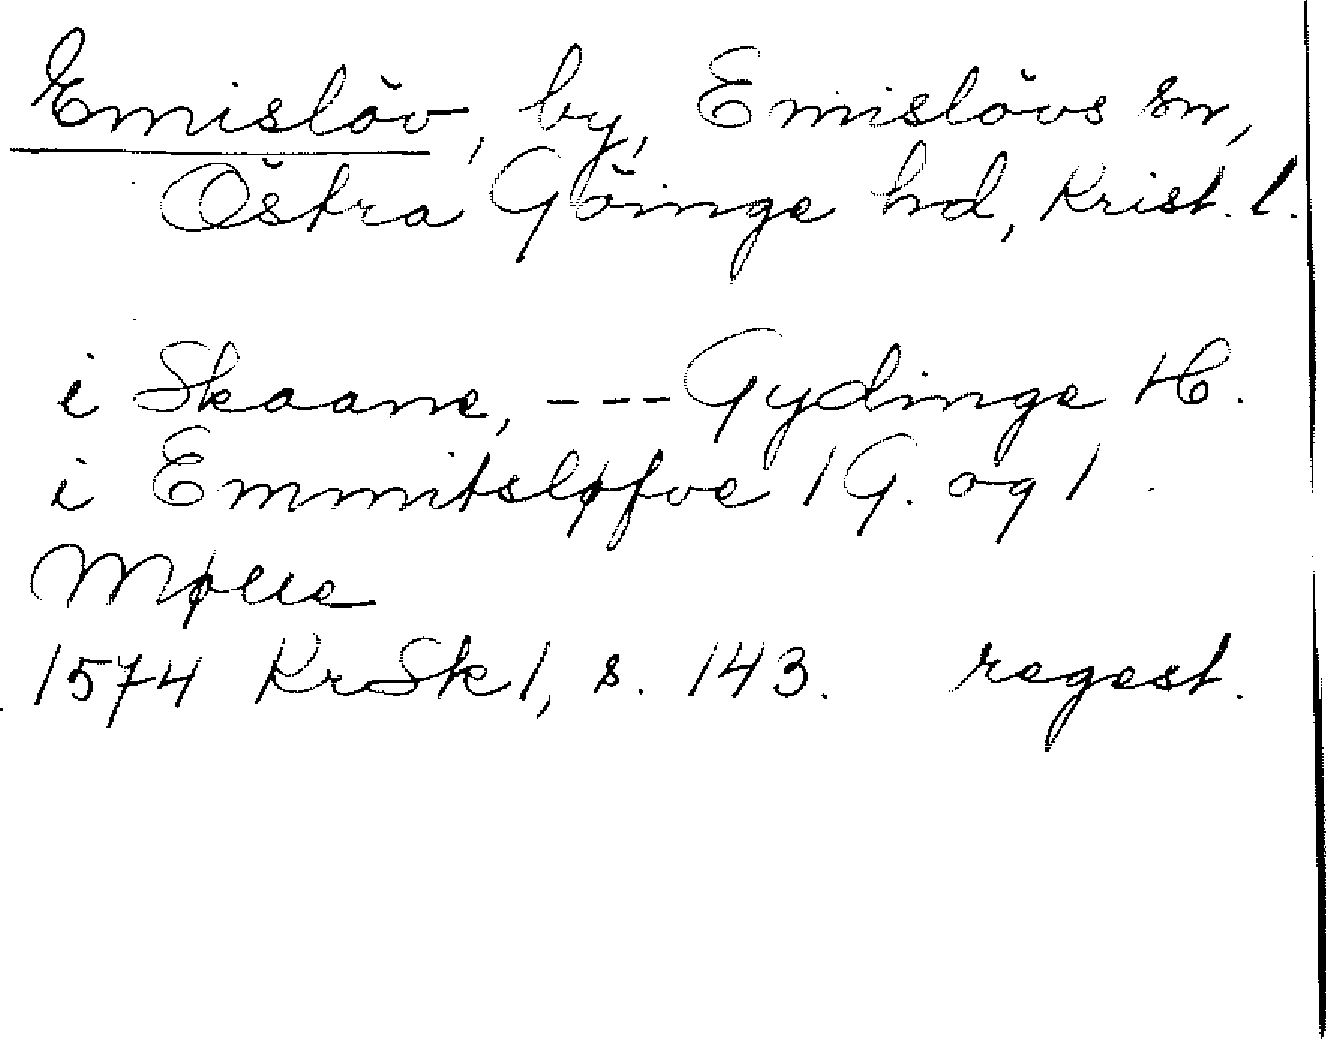 Emislöv, by, Emislövs sn,
Östra Göinge hd, Krist. l.
i Skaane, --- Gydinge H.
i Emmitsløfve 1 G. og 1
Mølle
1574 KrSk 1, s. 143. regest.